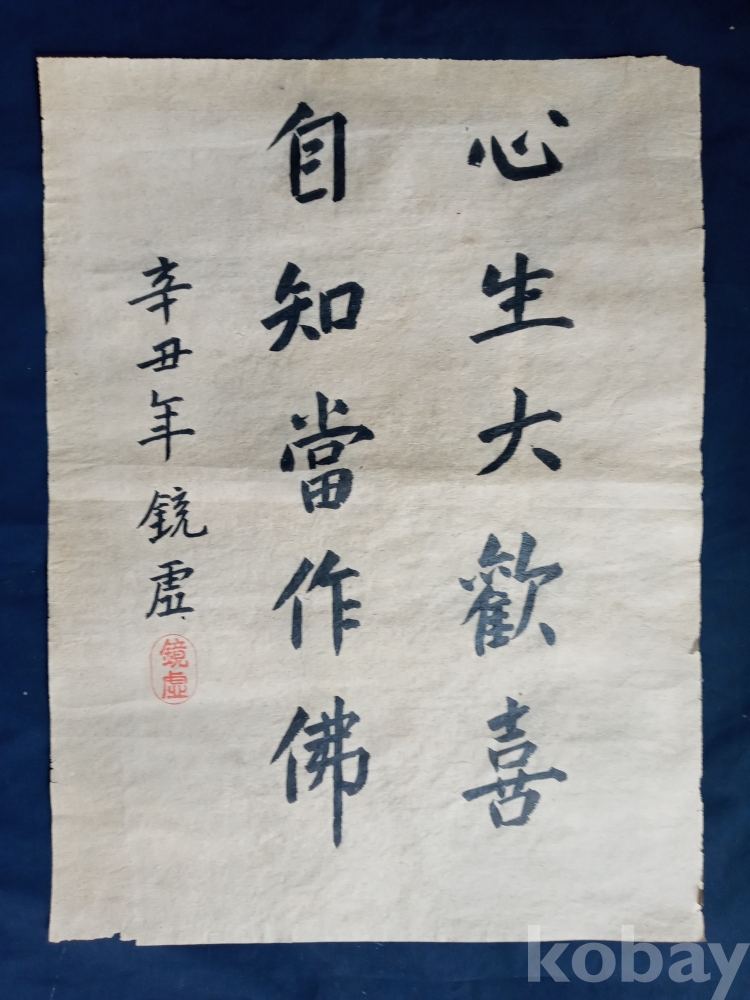 心生大歡喜
自知當作佛
辛丑年 鏡虛
鏡虛
kobay